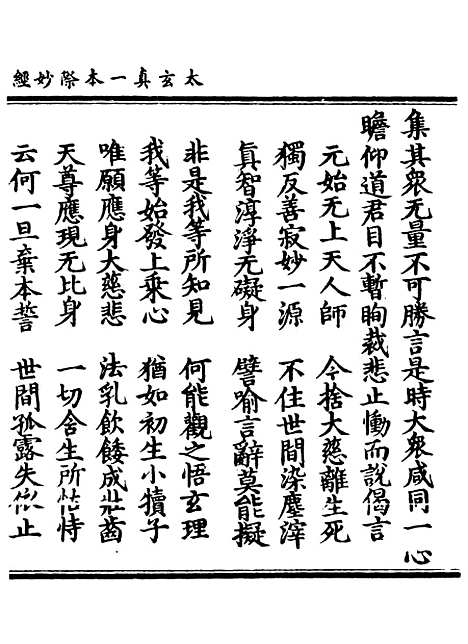 太玄真一本際妙經
集其眾无量不可勝言是時大眾咸同一心
瞻仰道君目不暫眴裁悲止慟而說偈言
元始无上天人師 今捨大慈離生死
獨反善寂妙一源 不住世間染塵滓
真智淳淨无礙身 譬喻言辭莫能擬
非是我等所知見 何能觀之悟玄理
我等始發上乘心 猶如初生小犢子
唯願應身大慈悲 法乳飲餧成壯齒
天尊應現无比身 一切含生所恃
云何一旦棄本誓 世間孤露失依止